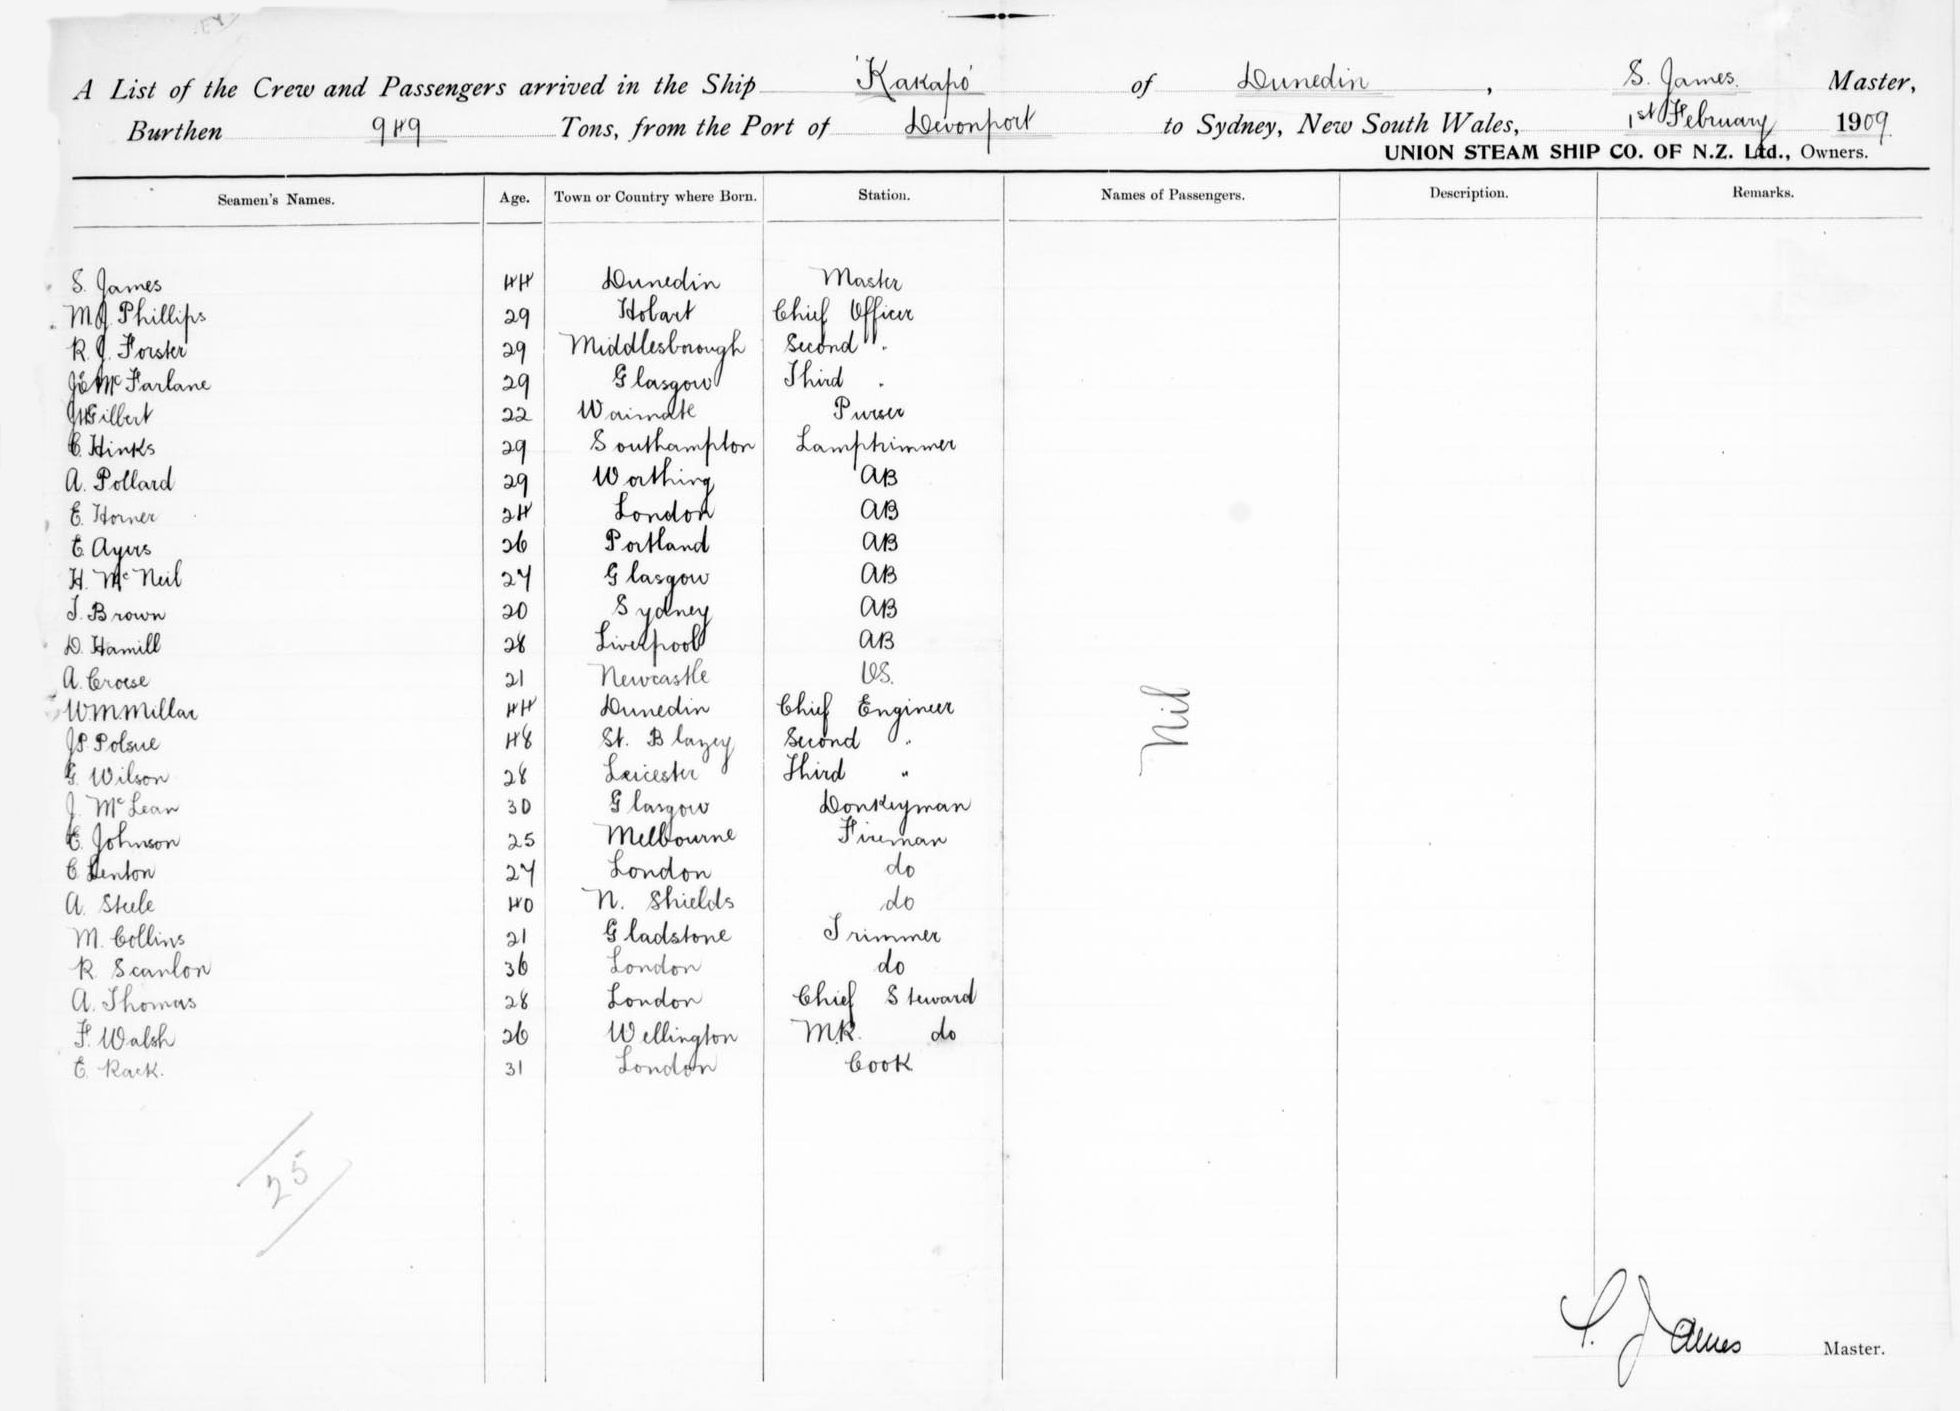 A List of the Crew and Passengers arrived in the Ship 'Kakapo' of Dunedin, S. James. Master,
Burthen 949 Tons, from the Port of Devonport to Sydney, New South Wales, 1st February 1909
UNION STEAM SHIP CO. OF N.Z. Ltd., Owners.
Seamen's Names. Age. Town or Country where Born. Station. Names of Passengers. Description. Remarks.
S. James 44 Dunedin Master
M.J. Phillips 29 Hobart Chief Officer
R. J. Forster 29 Middlesborough Second "
McFarlane 29 Glasgow Third "
Gilbert 22 Waimate Purser
C. Hinks 29 Southampton Lamptrimmer
A. Pollard 29 Worthing AB
E. Horner 24 London AB
E. Ayers 26 Portland AB
H. McNeil 27 Glasgow AB
T. Brown 20 Sydney AB
D. Hamill 28 Liverpool AB
A. Croese 21 Newcastle OS.
W M Millar 44 Dunedin Chief Engineer
J P Polsue 48 St. Blazey Second "
G. Wilson 28 Leicester Third "
J. McLean 30 Glasgow Donkeyman
C. Johnson 25 Melbourne Fireman
C Lenton 27 London do
A. Steele 40 N. Shields do
M. Collins 21 Gladstone Trimmer
R Scanlon 36 London do
A. Thomas 28 London Chief Steward
F. Walsh 26 Wellington M.R. do
E. Rack. 31 London Cook
Nil
25
S. James Master.